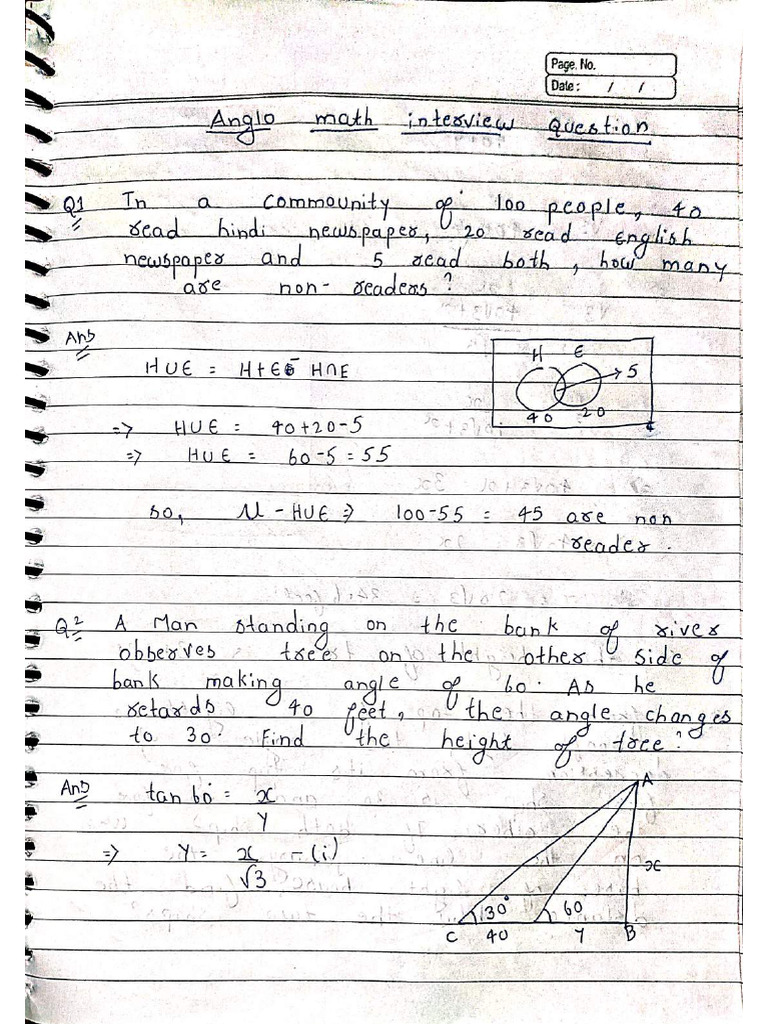 Page. No.
Date : / /
Anglo math interview Question
Q1 In a commounity of 100 people, 40
read hindi newspaper, 20 read English
newspaper and 5 read both, how many
are non-readers?
Ans
H E
5
HUE = H+E- H∩E
40 20
=> HUE = 40+20-5
=> HUE = 60-5 = 55
so, U - HUE => 100-55 = 45 are non
reader.
Q2 A Man standing on the bank of river
observes tree on the other side of
bank making angle of 60. As he
retards 40 feet, the angle changes
to 30. Find the height of tree?
Ans tan 60° = x/y
=> y = x/√3 - (i)
A
x
30° 60
C 40 y B